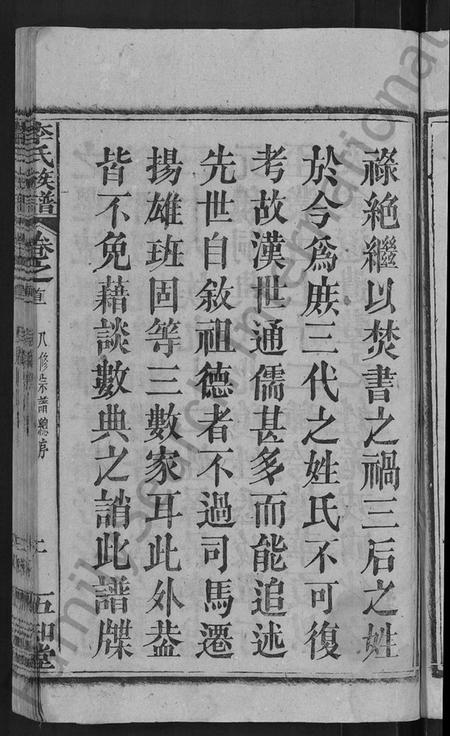 祿絶繼以焚書之禍三后之姓
於今為庶三代之姓氏不可復
考故漢世通儒甚多而能追述
先世自敘祖德者不過司馬遷
揚雄班固等三數家耳此外葢
皆不免藉談數典之誚此譜牒
李氏族譜 卷之首 八修宗譜總序 二 五知堂
FamilySearch International